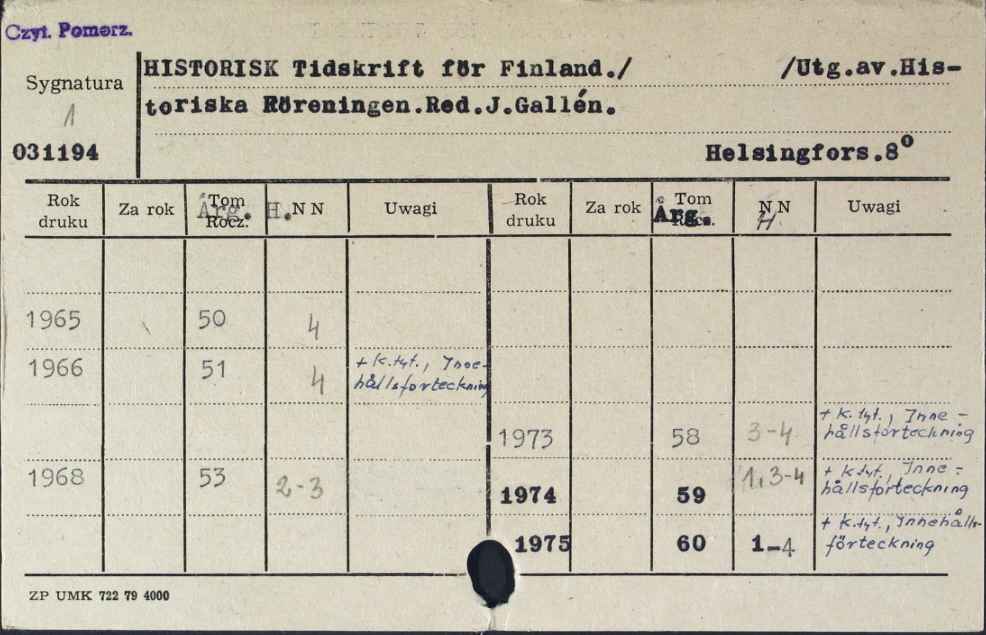 Czyt. Pomorz.
HISTORISK Tidskrift för Finland./ /Utg.av.His-
Sygnatura
toriska Föreningen.Red.J.Gallén.
1
031194
Helsingfors.8º
Rok druku Za rok Tom Rocz. Årg. H. N N Uwagi Rok druku Za rok Tom Rocz. Årg. N N H Uwagi
1965 50 4
1966 51 4 + k.tyt., Inne-
hållsforteckning
1973 58 3-4 + k.tyt., Inne-
hållsforteckning
1968 53 2-3
1974 59 1,3-4 + k.tyt., Inne-
hållsforteckning
1975 60 1-4 + k.tyt., Innehålls-
förteckning
ZP UMK 722 79 4000